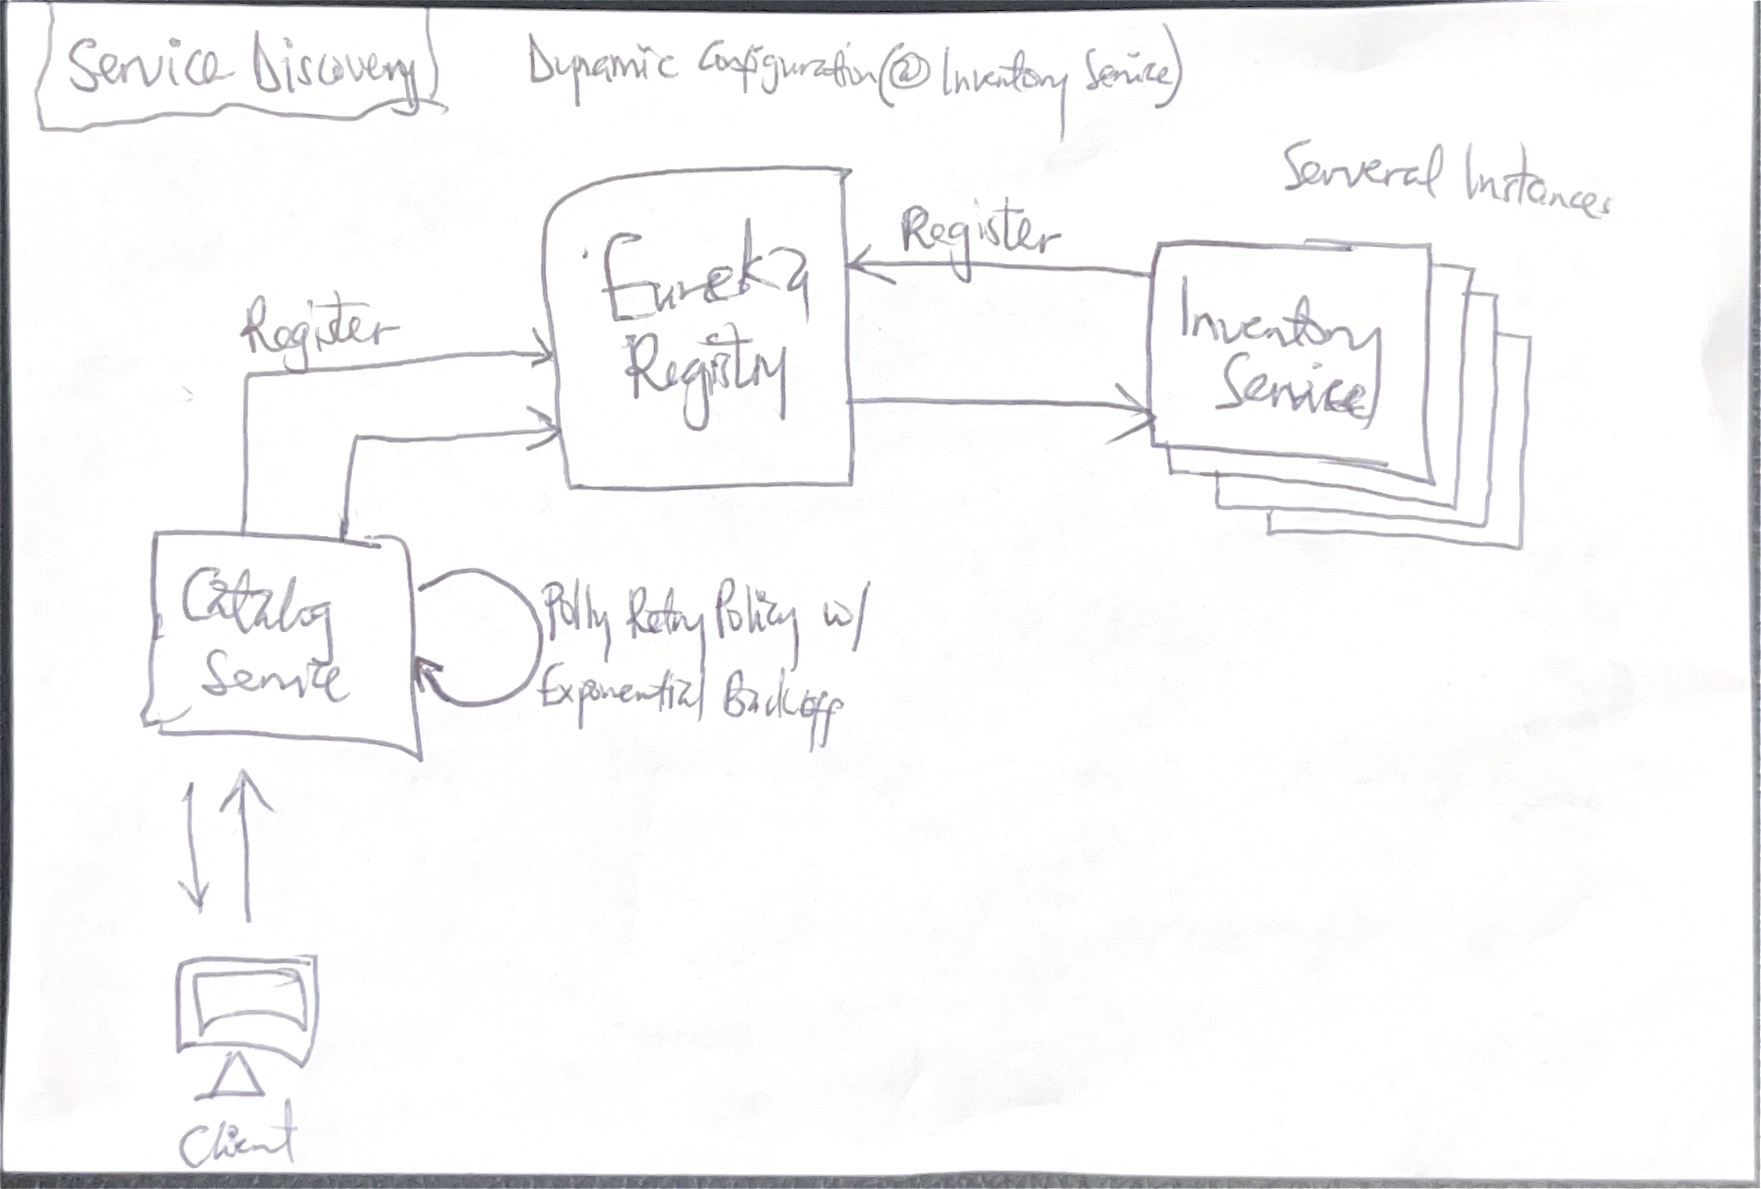 Service Discovery
Dynamic Configuration(@ Inventory Service)
Serveral Instances
Register
Eureka
Registry
Register
Inventory
Service
Catalog
Service
Polly Retry Policy w/
Exponential Backoff
Client